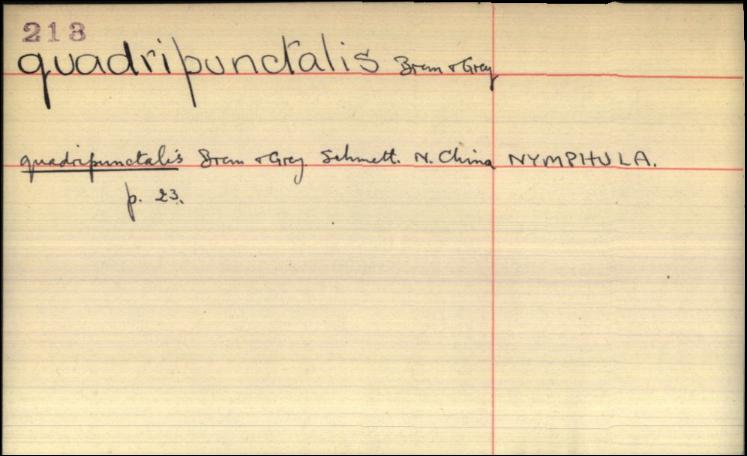 213
quadripunctalis Brem & Grey
quadripunctalis Brem & Grey. Schmett. N. China NYMPHULA.
p. 23.